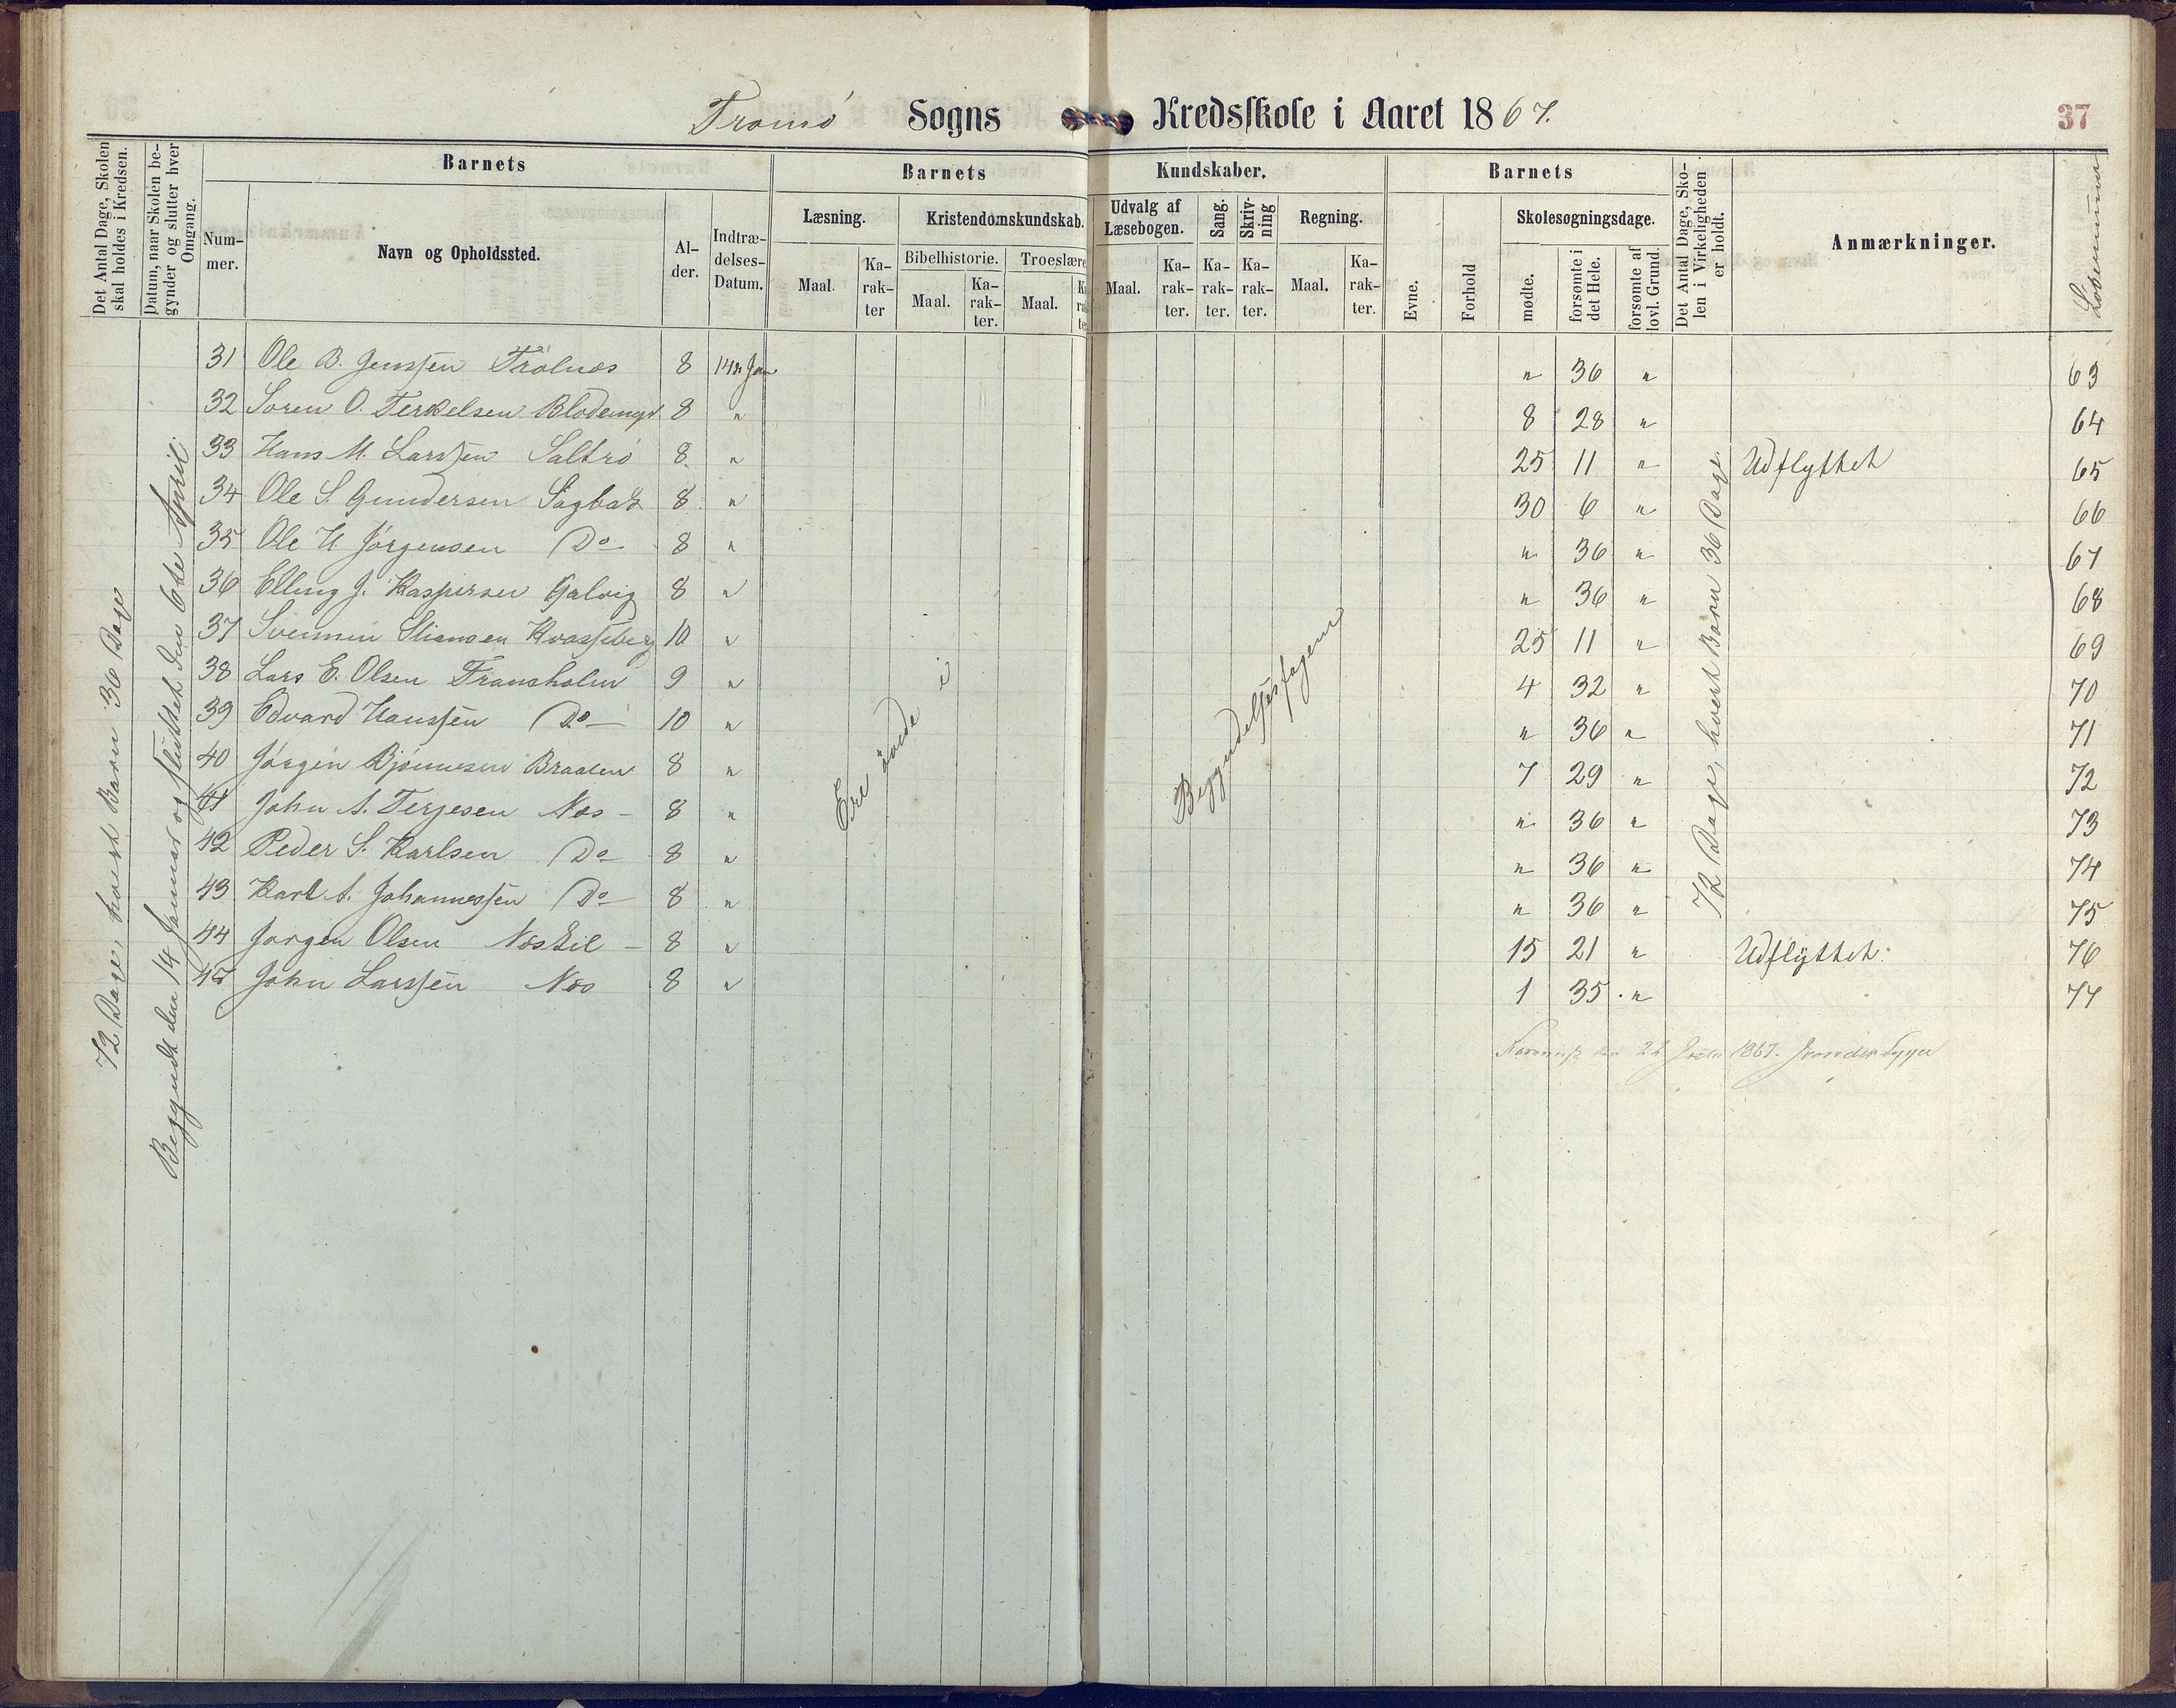 Tromö Sogns Kredsskole i Aaret 1867. 37
Det Antal Dage, Skolen skal holdes i Kredsen.
Datum, naar Skolen begynder og slutter hver Omgang.
Barnets
Nummer.
Navn og Opholdssted.
Alder.
Indtrædelses-Datum.
Barnets Kundskaber.
Læsning.
Maal.
Karakter
Kristendomskundskab.
Bibelhistorie.
Maal.
Karakter.
Troeslære
Maal.
Udvalg af Læsebogen.
Maal.
Karakter.
Sang.
Karakter.
Skrivning
Karakter.
Regning.
Maal.
Karakter.
Barnets
Evne.
Forhold
Skolesøgningsdage.
mødte.
forsømte i det Hele.
forsømte af lovl. Grund.
Det Antal Dage, Skolen i Virkeligheden er holdt.
Anmærkninger.
Löbenummer
72 Dage, hvert Barn 36 Dage
Begyndt den 14 Januar og sluttet den 6te April
31 Ole B. Jenssen Trolnæs 8 14n Jan " 36 " 63
32 Soren O. Terkelsen Blodemyr 8 " 8 28 " 64
33 Hans M. Larssen Saltrö 8 " 25 11 " Udflyttet 65
34 Ole S. Gundersen Sagbak 8 " 30 6 " 66
35 Ole H Jörgensen Do 8 " " 36 " 67
36 Elling J. Kaspersen Galvig 8 " " 36 " 68
37 Svennin Stiansen Kvasseberg 10 " 25 11 " 69
38 Lars E. Olsen Fransholm 9 " 4 32 " 70
39 Edvard Hanssen Do 10 " " 36 " 71
40 Jörgen Bjönnesen Braaten 8 " 7 29 " 72
41 John A. Terjesen Næs 8 " " 36 " 73
42 Peder S. Karlsen Do 8 " " 36 " 74
43 Karl A. Johannessen Do 8 " " 36 " 75
44 Jorgen Olsen Næskil 8 " 15 21 " Udflyttet. 76
45 John Larssen Næs 8 " 1 35 " 77
Ere övede i Begyndelsesfagene
72 Dage, hvert Barn 36 Dage
22 1867.